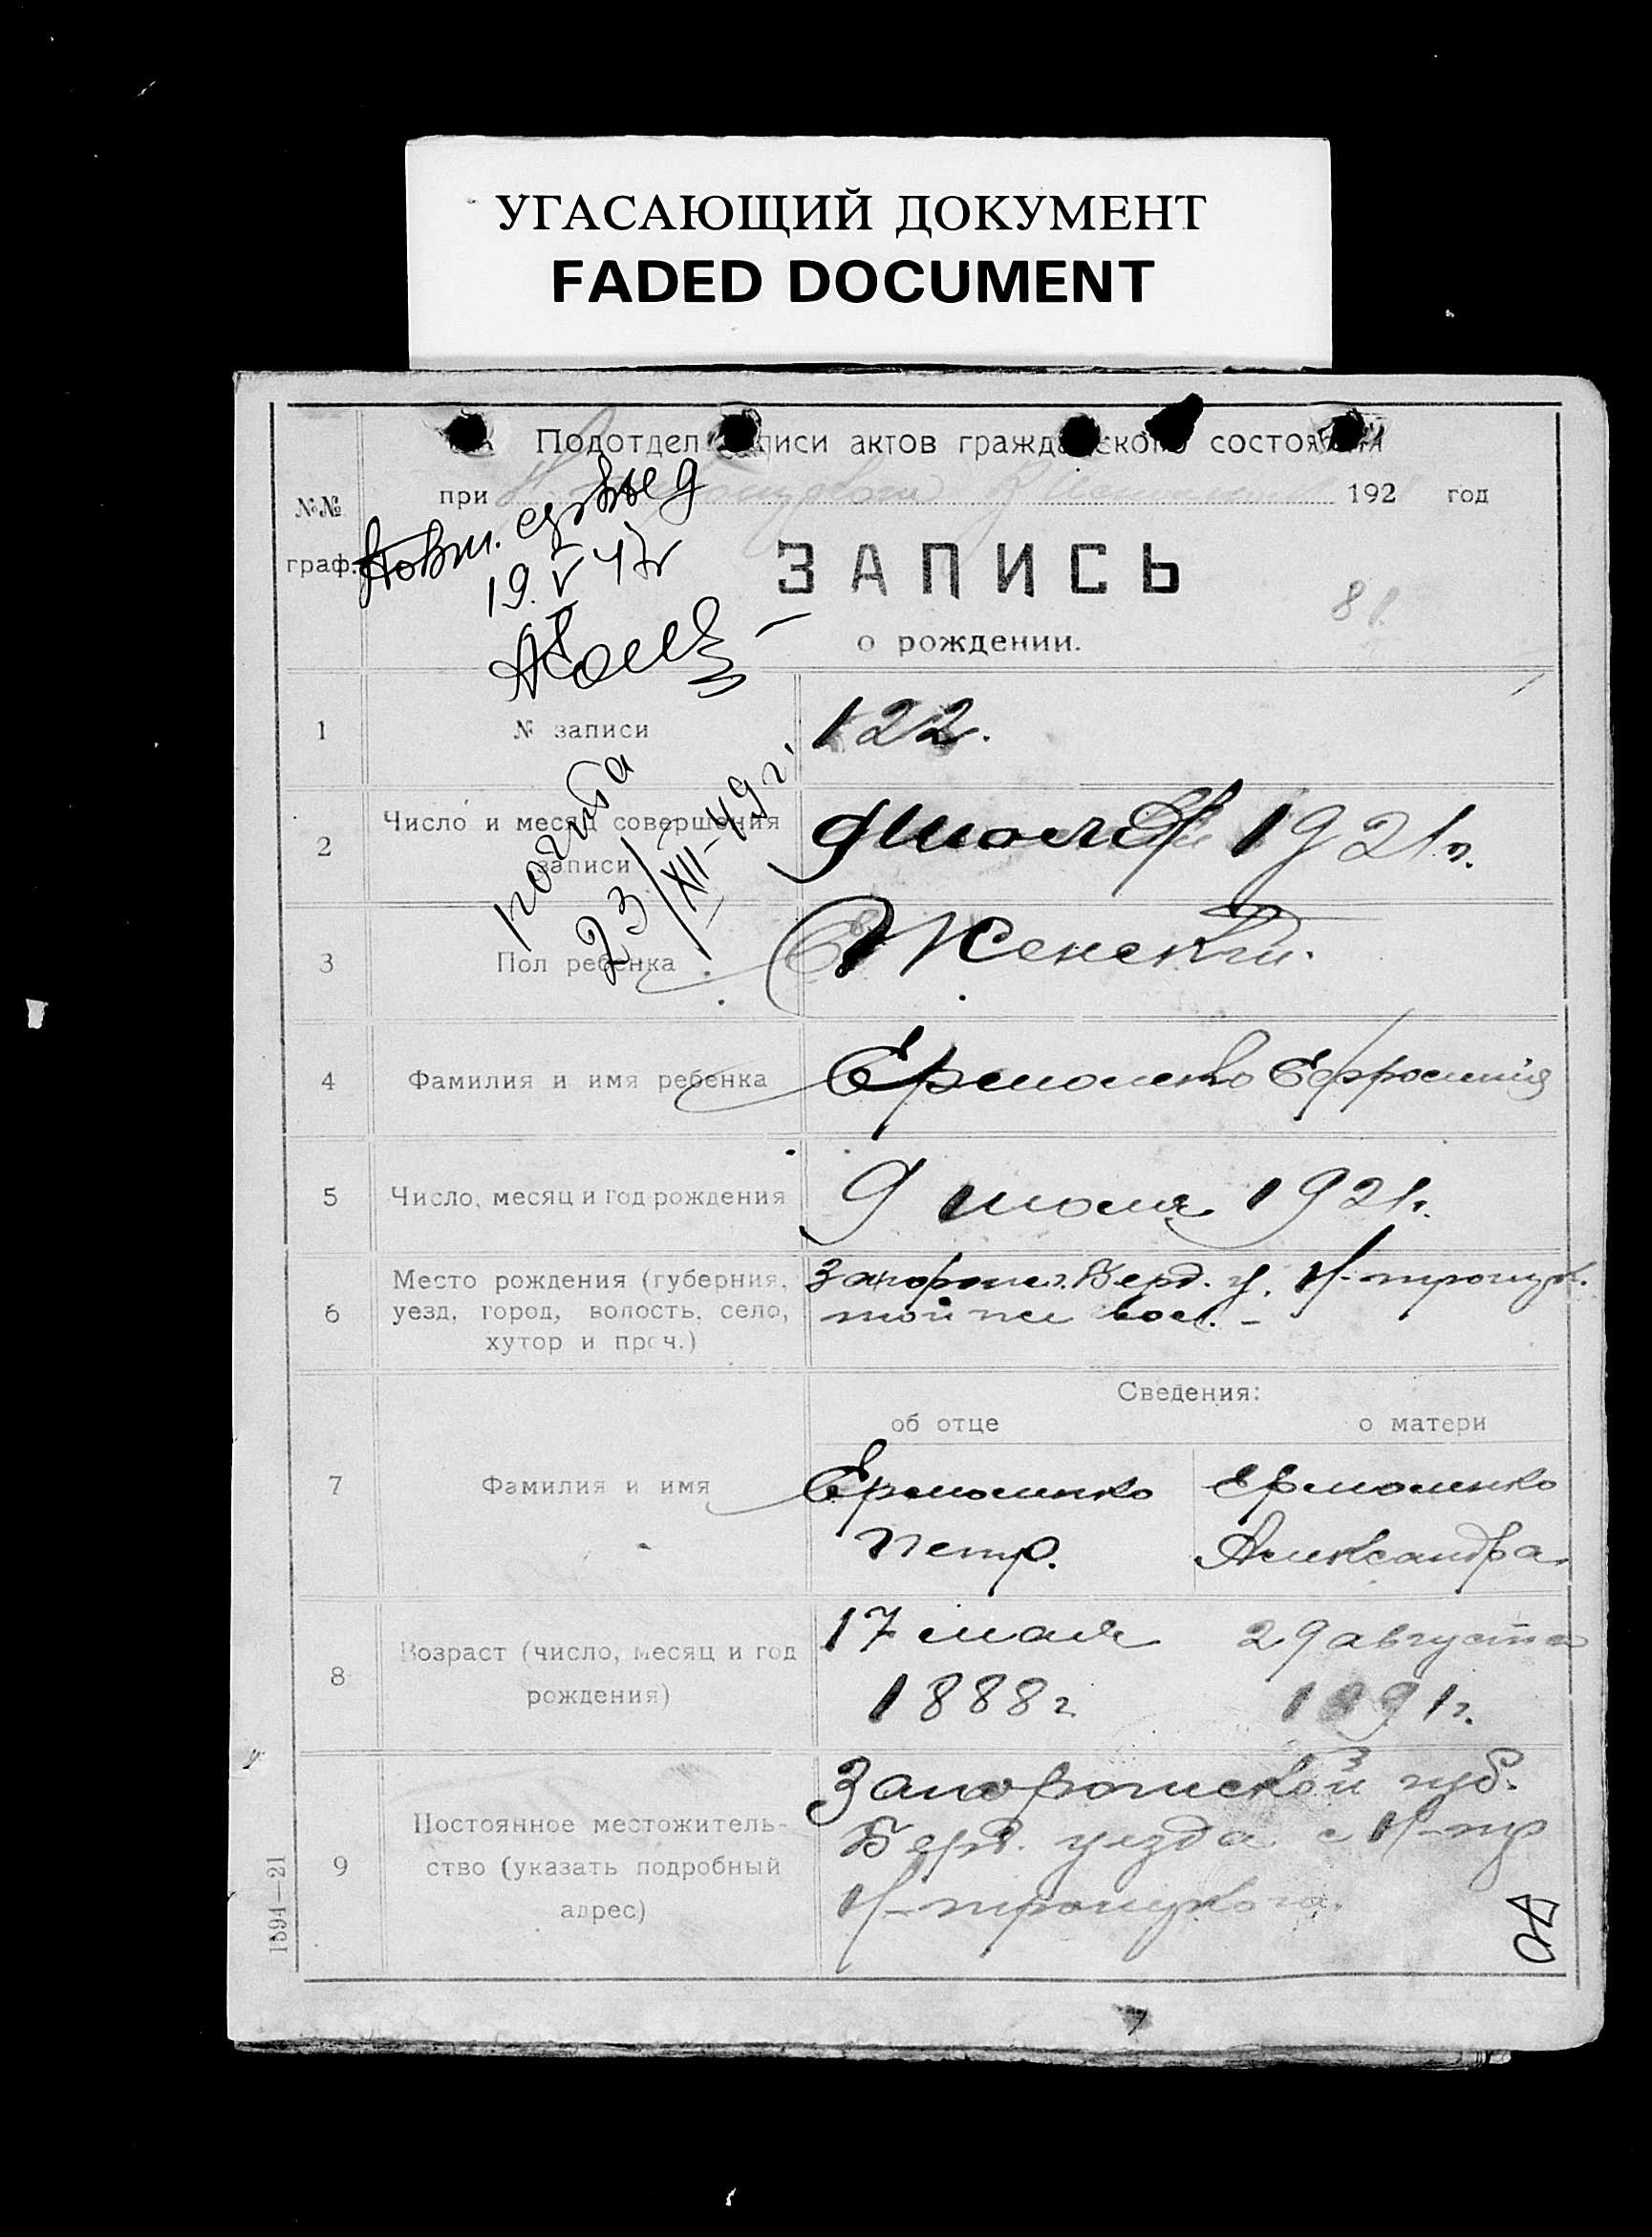 УГАСАЮЩИЙ ДОКУМЕНТ
FADED DOCUMENT
Подотдел записи актов гражданского состояния
№№
граф.
при
192 год
Повт. свид
19. V 47г
ЗАПИСЬ
81.
о рождении.
1
№ записи
122.
2
Число и месяц совершения
записи
9 июля 1921г.
23/XII-49г.
3
Пол ребенка
Женский.
4
Фамилия и имя ребенка
Ермоленко Ефросиния
5
Число, месяц и год рождения
9 июля 1921г.
6
Место рождения (губерния,
уезд, город, волость, село,
хутор и проч.)
Запорож. Берд. у. Н-троицк.
той же вол. -
Сведения:
об отце
о матери
7
Фамилия и имя
Ермоленко
Петр.
Ермоленко
Александра.
8
Возраст (число, месяц и год
рождения)
17 мая
1888г
29 августа
1891г.
9
Постоянное местожитель-
ство (указать подробный
адрес)
Запорожской губ.
Берд. уезда с Н-тр
Н-троицкого.
1594—21